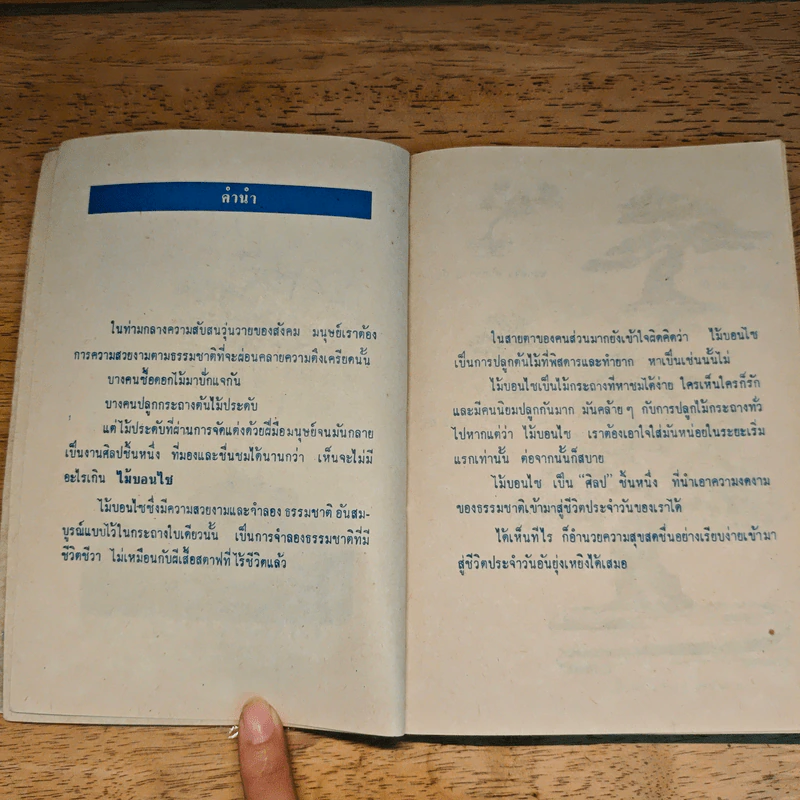 คำนำ
ในท่ามกลางความสับสนวุ่นวายของสังคม มนุษย์เราต้อง
การความสวยงามตามธรรมชาติที่จะผ่อนคลายความตึงเครียดนั้น
บางคนซื้อดอกไม้มาปักแจกัน
บางคนปลูกกระถางต้นไม้ประดับ
แต่ไม้ประดับที่ผ่านการจัดแต่งด้วยฝีมือมนุษย์จนมันกลาย
เป็นงานศิลปชิ้นหนึ่ง ที่มองและชื่นชมได้นานกว่า เห็นจะไม่มี
อะไรเกิน ไม้บอนไซ
ไม้บอนไซซึ่งมีความสวยงามและจำลอง ธรรมชาติ อันสม-
บูรณ์แบบไว้ในกระถางใบเดียวนั้น เป็นการจำลองธรรมชาติที่มี
ชีวิตชีวา ไม่เหมือนกับผีเสื้อสตาฟที่ไร้ชีวิตแล้ว
ในสายตาของคนส่วนมากยังเข้าใจผิดคิดว่า ไม้บอนไซ
เป็นการปลูกต้นไม้ที่พิสดารและทำยาก หาเป็นเช่นนั้นไม่
ไม้บอนไซเป็นไม้กระถางที่หาชมได้ง่าย ใครเห็นใครก็รัก
และมีคนนิยมปลูกกันมาก มันคล้ายๆ กับการปลูกไม้กระถางทั่ว
ไปหากแต่ว่า ไม้บอนไซ เราต้องเอาใจใส่มันหน่อยในระยะเริ่ม
แรกเท่านั้น ต่อจากนั้นก็สบาย
ไม้บอนไซ เป็น "ศิลป" ชิ้นหนึ่ง ที่นำเอาความงดงาม
ของธรรมชาติเข้ามาสู่ชีวิตประจำวันของเราได้
ได้เห็นทีไร ก็อำนวยความสุขสดชื่นอย่างเรียบง่ายเข้ามา
สู่ชีวิตประจำวันอันยุ่งเหยิงได้เสมอ